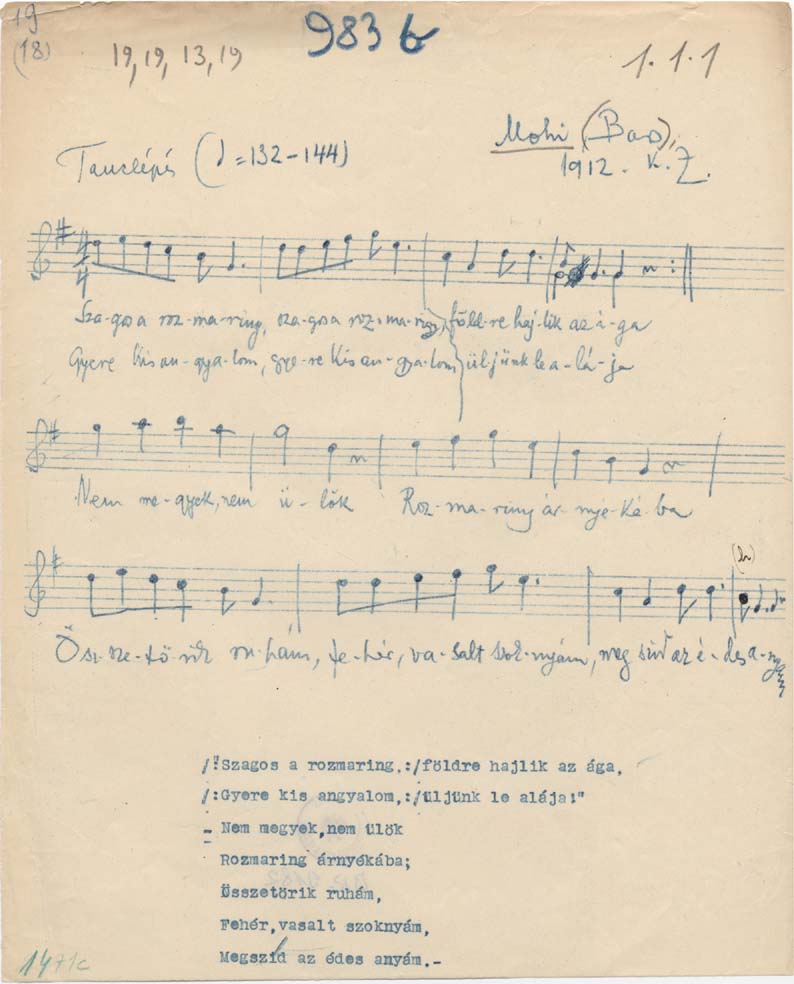 19
(18)
19, 19, 13, 19
983 b
1.1.1
Mohi (Bars),
1912. K. Z.
Tánclépés (♩=132-144)
4
4
Sza-gos a roz-ma-ring, sza-gos a roz-ma-ring, föld-re haj-lik az á-ga
Gyere kis an-gya-lom, gye-re kis an-gya-lom üljünk le a-lá-ja
Nem me-gyek, nem ü-lök Roz-ma-ring ár-nyé-ká-ba
Ösz-sze-tö-rik ru-hám, fe-hér, va-salt szok-nyám, meg szid az é-des a-nyám
/:Szagos a rozmaring,:/földre hajlik az ága,
/:Gyere kis angyalom,:/üljünk le alája!"
- Nem megyek,nem ülök
Rozmaring árnyékába;
Összetörik ruhám,
Fehér,vasalt szoknyám,
Megszid az édes anyám.-
1471c